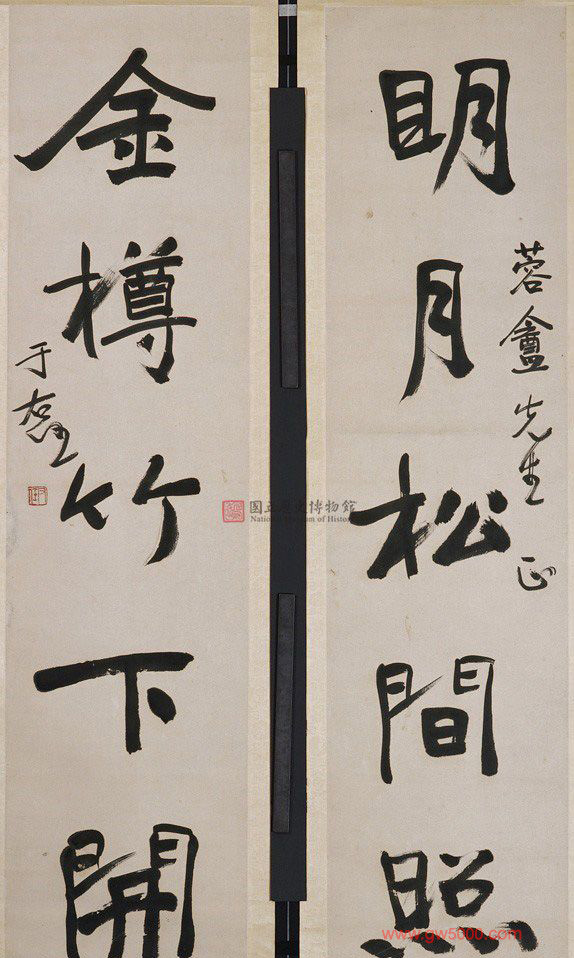 蓉盦先生正
明月松間照
金樽竹下開
于右任
国立歷史博物館
National Museum of History
www.gw5000.com